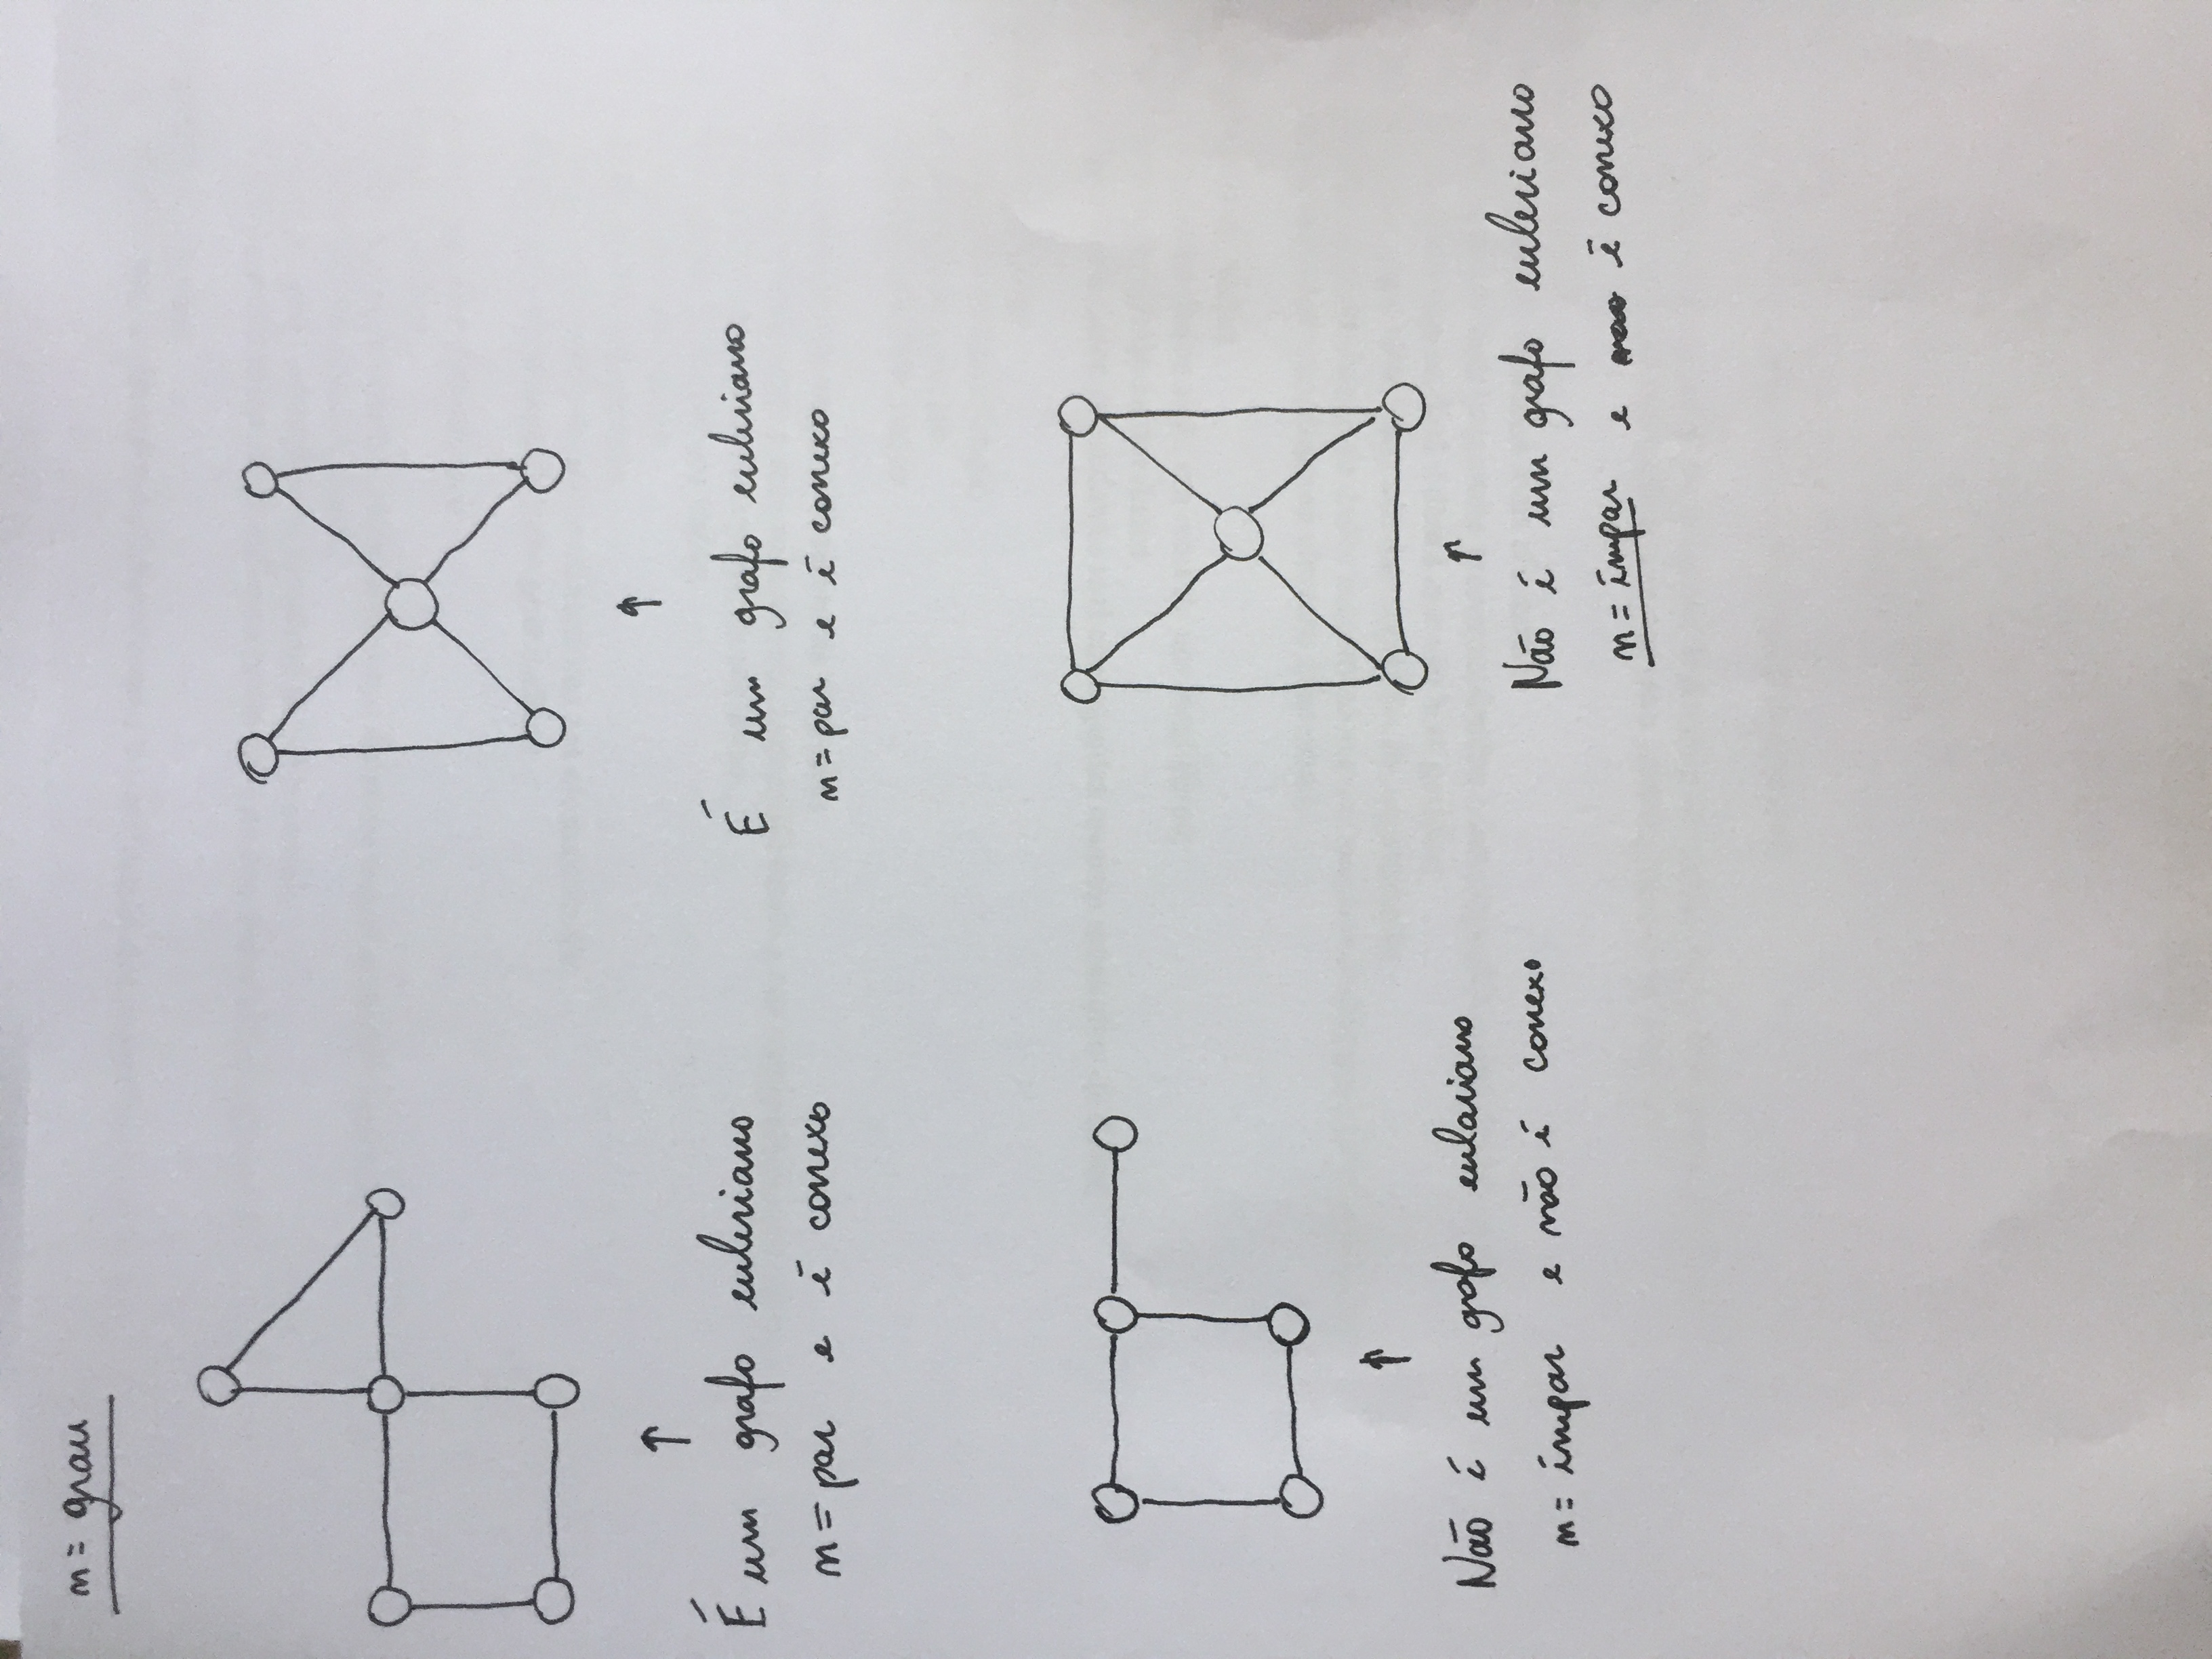 n = grau
É um grafo euleriano
n = par e é conexo
É um grafo euleriano
n = par e é conexo
Não é um grafo eulariano
n = ímpar e não é conexo
Não é um grafo euleriano
n = ímpar e é conexo